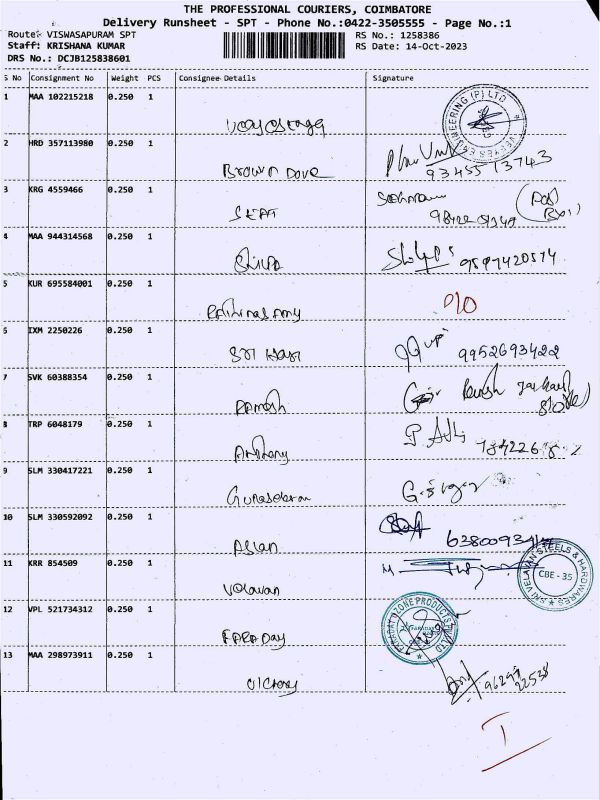 THE PROFESSIONAL COURIERS, COIMBATORE
Delivery Runsheet - SPT - Phone No.:0422-3505555 - Page No.:1
Route: VISWASAPURAM SPT RS No.: 1258386
Staff: KRISHANA KUMAR RS Date: 14-Oct-2023
DRS No.: DCJB125838601
S No Consignment No Weight PCS Consignee Details Signature
1 MAA 102215218 0.250 1
2 HRD 357113980 0.250 1
Brown Dove 9345513743
3 KRG 4559466 0.250 1
4 MAA 944314568 0.250 1
Shilpa
5 KUR 695584001 0.250 1
6 IXM 2250226 0.250 1
Sri Hari 9952693422
7 SVK 60388354 0.250 1
Ramesh
8 TRP 6048179 0.250 1
Anthony
9 SLM 330417221 0.250 1
Gunasekaran
10 SLM 330592092 0.250 1
Asian
11 KRR 854509 0.250 1
Velavan
SRI VELAVAN STEELS & HARDWARES
CBE - 35
12 VPL 521734312 0.250 1
FARADAY
FARADAY OZONE PRODUCTS PVT LTD
13 MAA 298973911 0.250 1
Victory